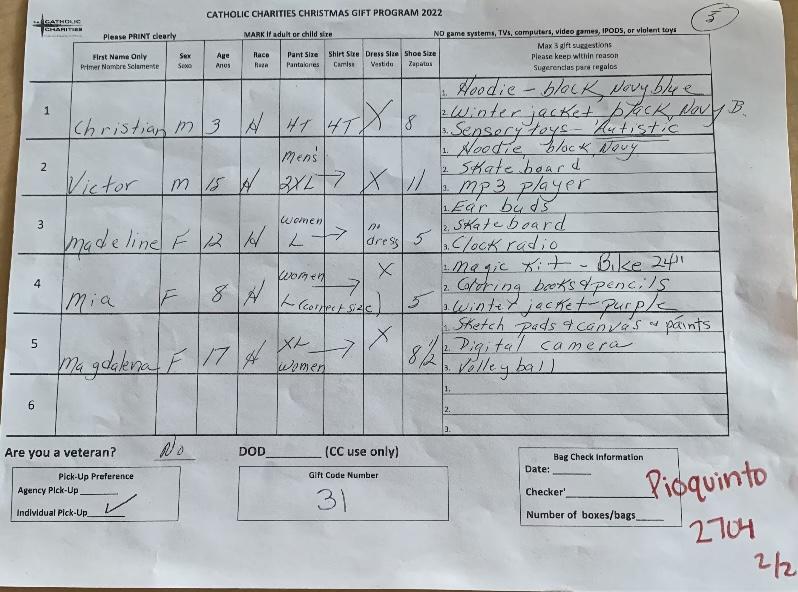 CATHOLIC CHARITIES
CATHOLIC CHARITIES CHRISTMAS GIFT PROGRAM 2022
5
Please PRINT clearly MARK if adult or child size NO game systems, TVs, computers, video games, IPODS, or violent toys
First Name Only Sex Age Race Pant Size Shirt Size Dress Size Shoe Size Max 3 gift suggestions
Primer Nombre Solamente Sexo Anos Raza Pantalones Camisa Vestido Zapatos Please keep within reason
Sugerencias para regalos
1 Christian m 3 H 4T 4T X 8
1. Hoodie - black, Navy blue
2. Winter jacket black, Navy B.
3. Sensory toys - Autistic
2 Victor m 15 H Men's 2XL → X 11
1. Hoodie black, Navy
2. Skateboard
3. mp3 player
3 Madeline F 12 H Women L → no dress 5
1. Ear buds
2. Skateboard
3. Clock radio
4 Mia F 8 H Women → L (correct size) X 5
1. Magic Kit - Bike 24"
2. Coloring books & pencils
3. Winter jacket - purple
5 Magdalena F 17 H XL → Women X 8 1/2
1. Sketch pads & canvas & paints
2. Digital camera
3. Volleyball
6
1.
2.
3.
Are you a veteran? No DOD______ (CC use only)
Pick-Up Preference
Agency Pick-Up
Individual Pick-Up ✓
Gift Code Number
31
Bag Check Information
Date:
Checker'
Number of boxes/bags
Pioquinto
2704
2/2